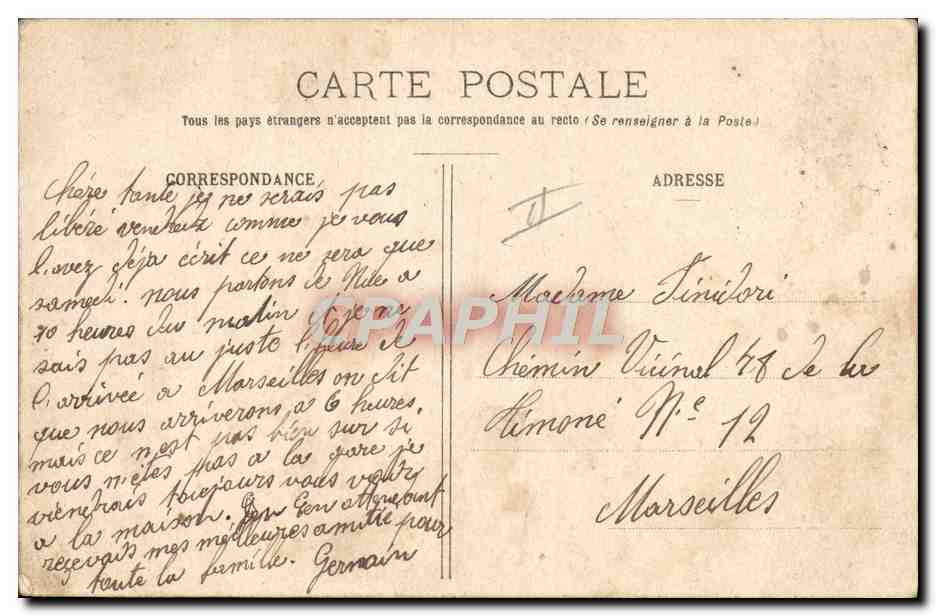 CARTE POSTALE
Tous les pays étrangers n'acceptent pas la correspondance au recto (Se renseigner à la Poste)
CORRESPONDANCE
Chére tante je ne serais pas
libéré vendredi comme je vous
l'avez déja écrit ce ne sera que
samedi. nous partons de Nice a
10 heures du matin et je ne
sais pas au juste l'heure de
l'arrivée a Marseilles on dit
que nous arriverons a 6 heures.
mais ce n'est pas bien sur si
vous n'étes pas a la gare je
viendrais toujours vous voir
a la maison. En attendant
recevais mes meilleures amitié pour
toute la famille. Germain
ADRESSE
II
Madame Finidori
Chemin Vicinal 48 de la
Timoné N.e 12
Marseilles
CPAPHIL